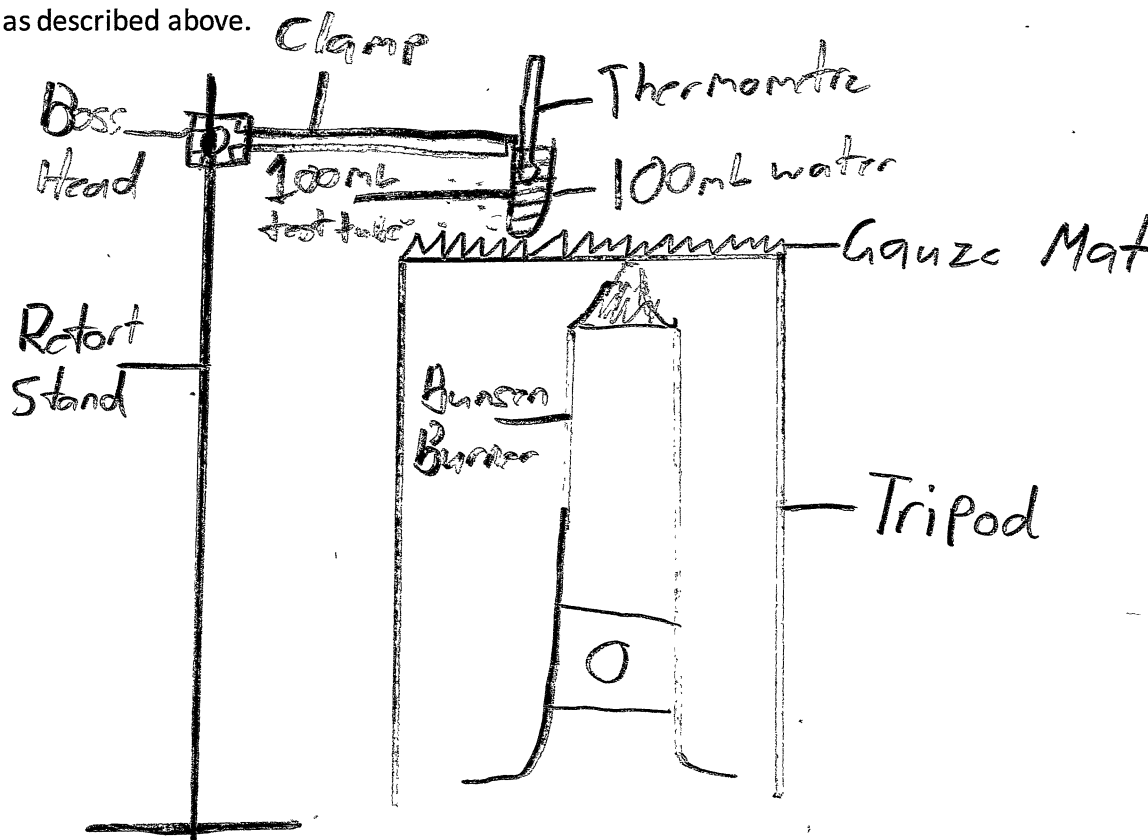 as described above.
Clamp
Thermometre
Boss
Head
100mL
test tube
100mL water
Gauze Mat
Retort
Stand
Bunsen
Burner
Tripod